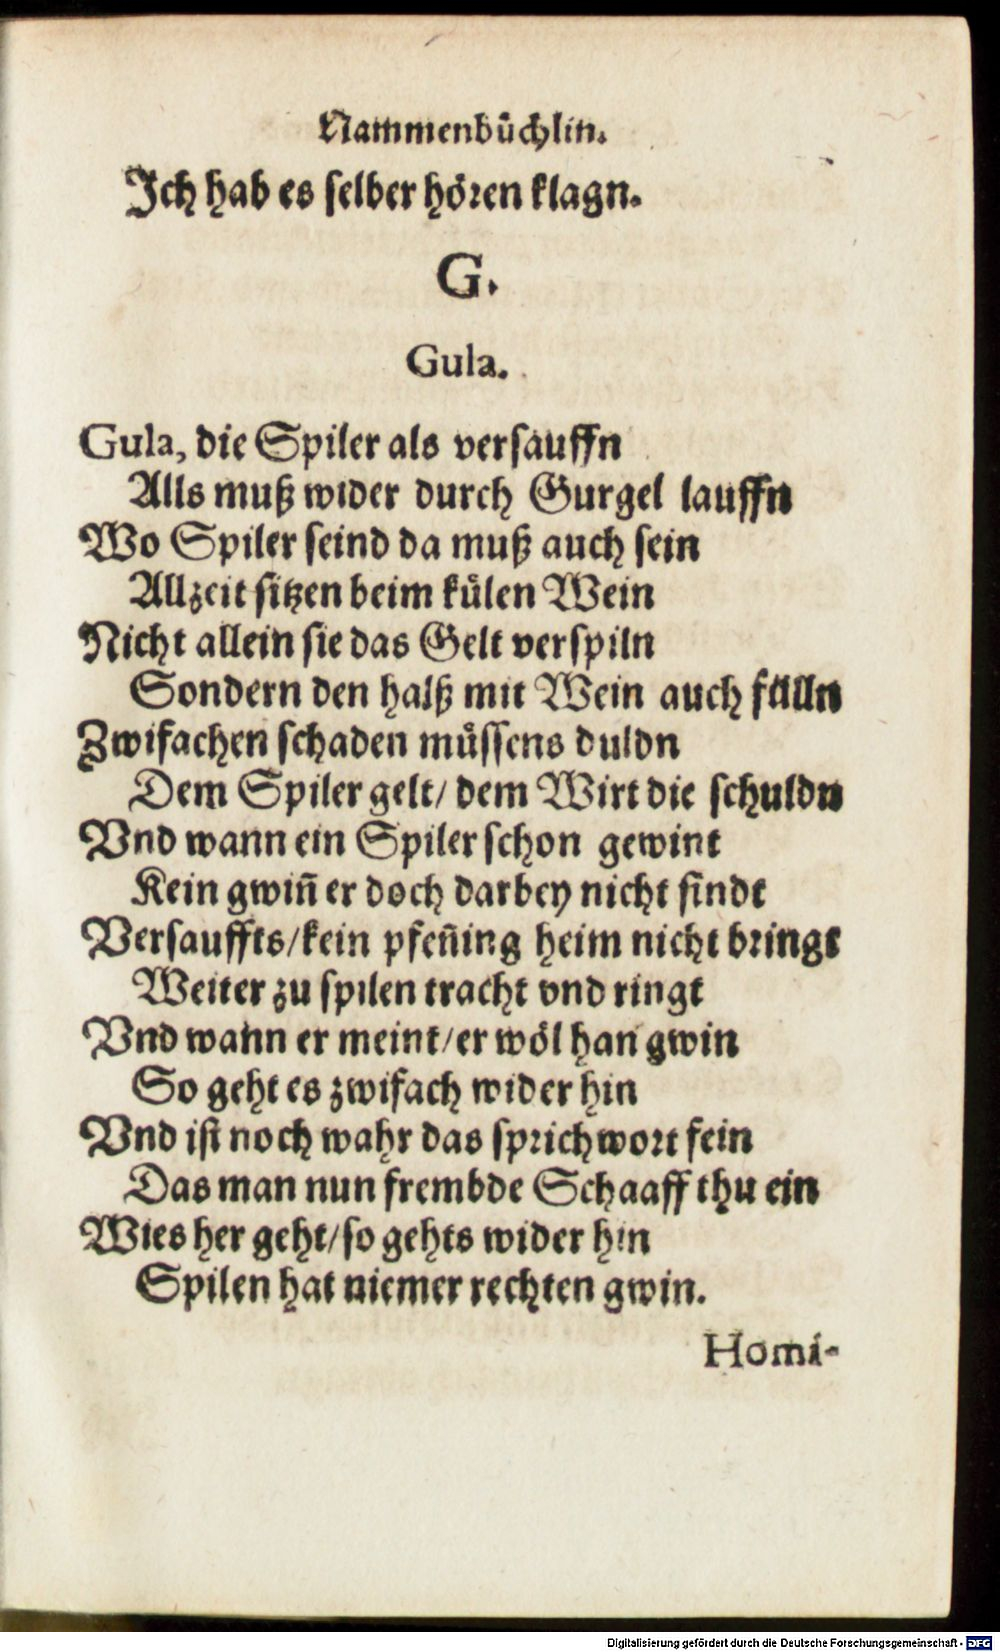 Nammenbüchlin.
Ich hab es selber hören klagn.
G.
Gula.
Gula, die Spiler als versauffn
Alls muß wider durch Gurgel lauffn
Wo Spiler seind da muß auch sein
Allzeit sitzen beim külen Wein
Nicht allein sie das Gelt verspiln
Sondern den halß mit Wein auch fülln
Zwifachen schaden müssens duldn
Dem Spiler gelt/ dem Wirt die schuldn
Vnd wann ein Spiler schon gewint
Kein gwiñ er doch darbey nicht findt
Versauffts/kein pfeñing heim nicht bringt
Weiter zu spilen tracht vnd ringt
Vnd wann er meint/er wöl han gwin
So geht es zwifach wider hin
Vnd ist noch wahr das sprichwort fein
Das man nun frembde Schaaff thu ein
Wies her geht/so gehts wider hin
Spilen hat niemer rechten gwin.
Homi-
Digitalisierung gefördert durch die Deutsche Forschungsgemeinschaft - DFG